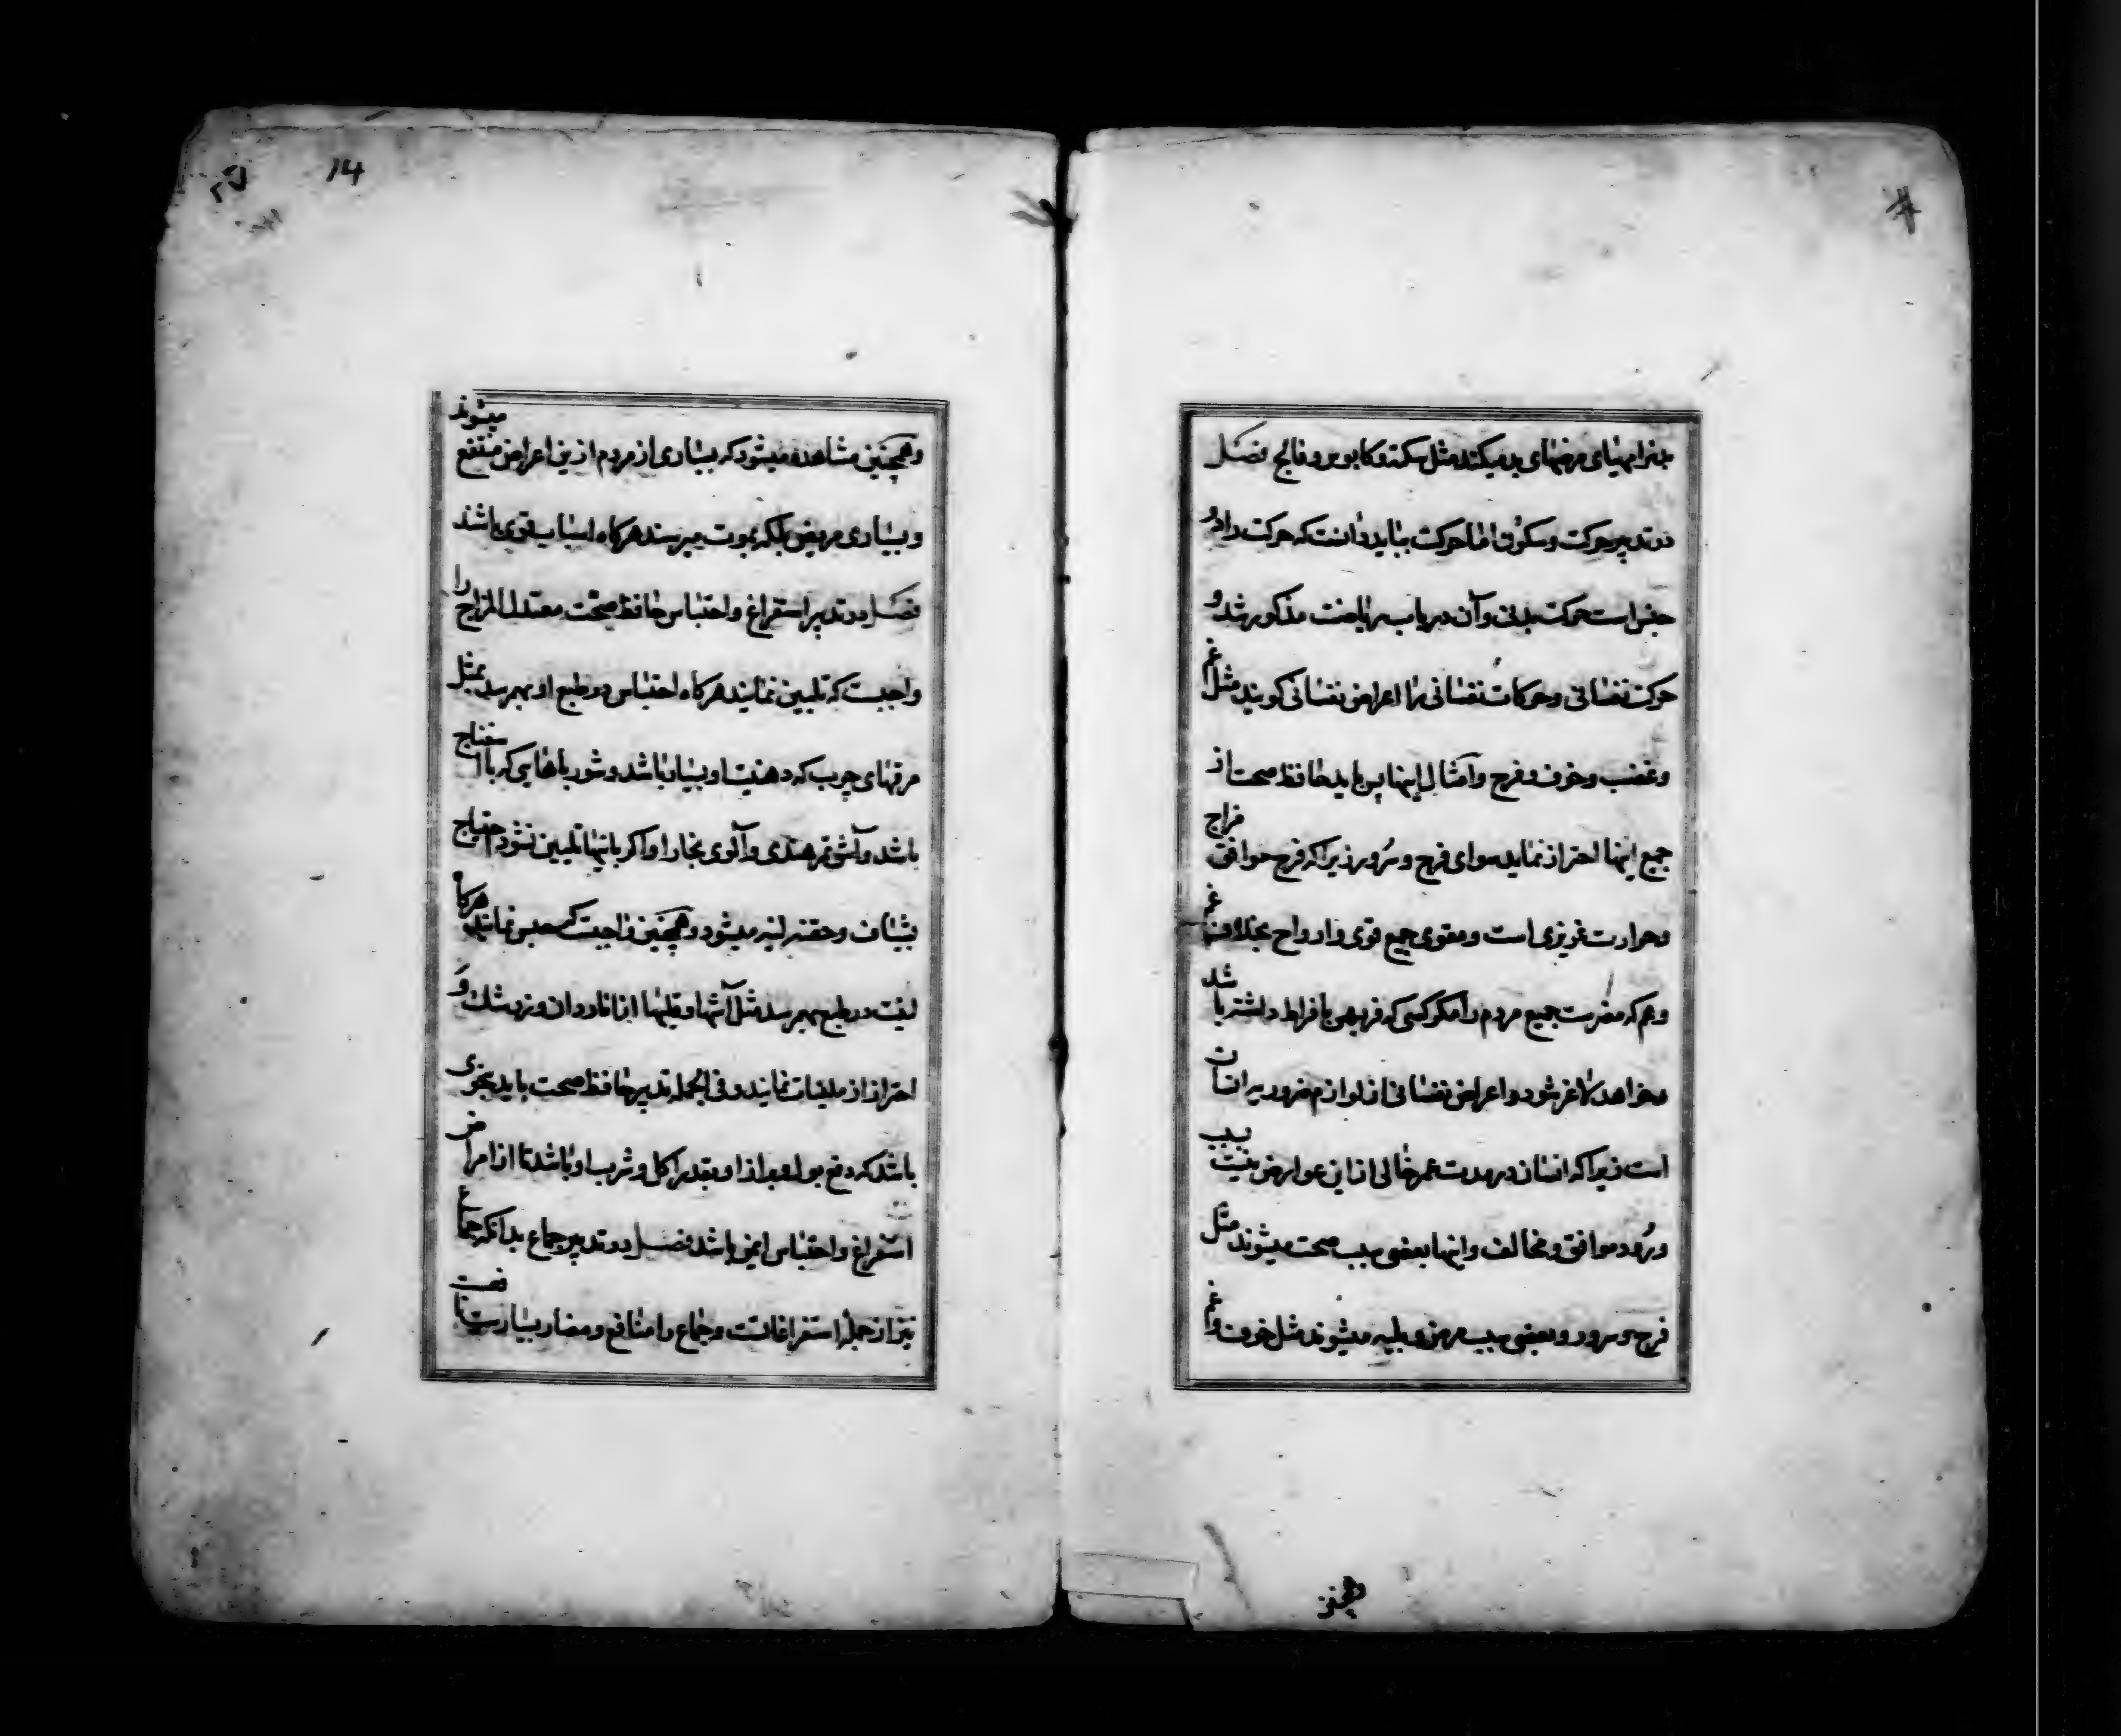 بدنرا مهیای مرضهای بد میکند مثل سکته و کابوس و فالج فصل
در تدبیر حرکت و سکون اما حرکت بباید دانست که حرکت را دو
جنس است حرکت بدنی و آن در باب ریاضت مذکور شد و
حرکت نفسانی و حرکات نفسانی را اعراض نفسانی کویند مثل غم
و غضب و خوف و فرح و امثال اینها پس باید حافظ صحت از
جمیع اینها احتراز نماید سوای فرح و سرور زیرا که فرح موافق مزاج
و حرارت غریزی است و مقوی جمیع قوی و ارواح بخلاف غم
و هم که مضرست جمیع مردم را مکر کسی که فربهی بافراط داشته باشد
و خواهد که لاغر شود و اعراض نفسانی از لوازم ضروریه انسان
است زیرا که انسان در مدت عمر خالی ازاین عوارض نیست بسبب
ورود موافق و مخالف و اینها بعضی سبب صحت میشوند مثل
فرح و سرور و بعضی سبب مرض و بلیه میشوند مثل خوف و غم
همچنین
14
و همچنین مشاهده میشود که بسیاری از مردم ازین اعراض منتفع میشوند
و بسیاری مریض بلکه بموت میرسند هرکاه اسباب قوی باشند
فصل در تدبیر استفراغ و احتباس حافظ صحت معتدل المزاج را
واجبست که تلیین نمایند هرکاه احتباس در طبع او بهم رسد بمثل
مرقهای چرب که دهنیت او بسیار باشد و شورباهایی که با اسفناج
باشد و آش تمر هندی و آلوی بخارا و اکر باینها تلیین نشود احتیاج
بشیاف و حقنه لینه میشود و همچنین واجبست که حبس نمایند هرکاه
لینت در طبع بهم رسد مثل آشها و قلیها از اناردان و زرشک و
احتراز از ملینات نمایند و فی الجمله تدبیر حافظ صحت باید بنحوی
باشد که دفع بول و براز او بقدر اکل و شرب او باشد تا از امراض
استفراغ و احتباس ایمن باشد فصل در تدبیر جماع بدانکه جماع
نیز از جمله استفراغاتست و جماع را منافع و مضار بسیارست